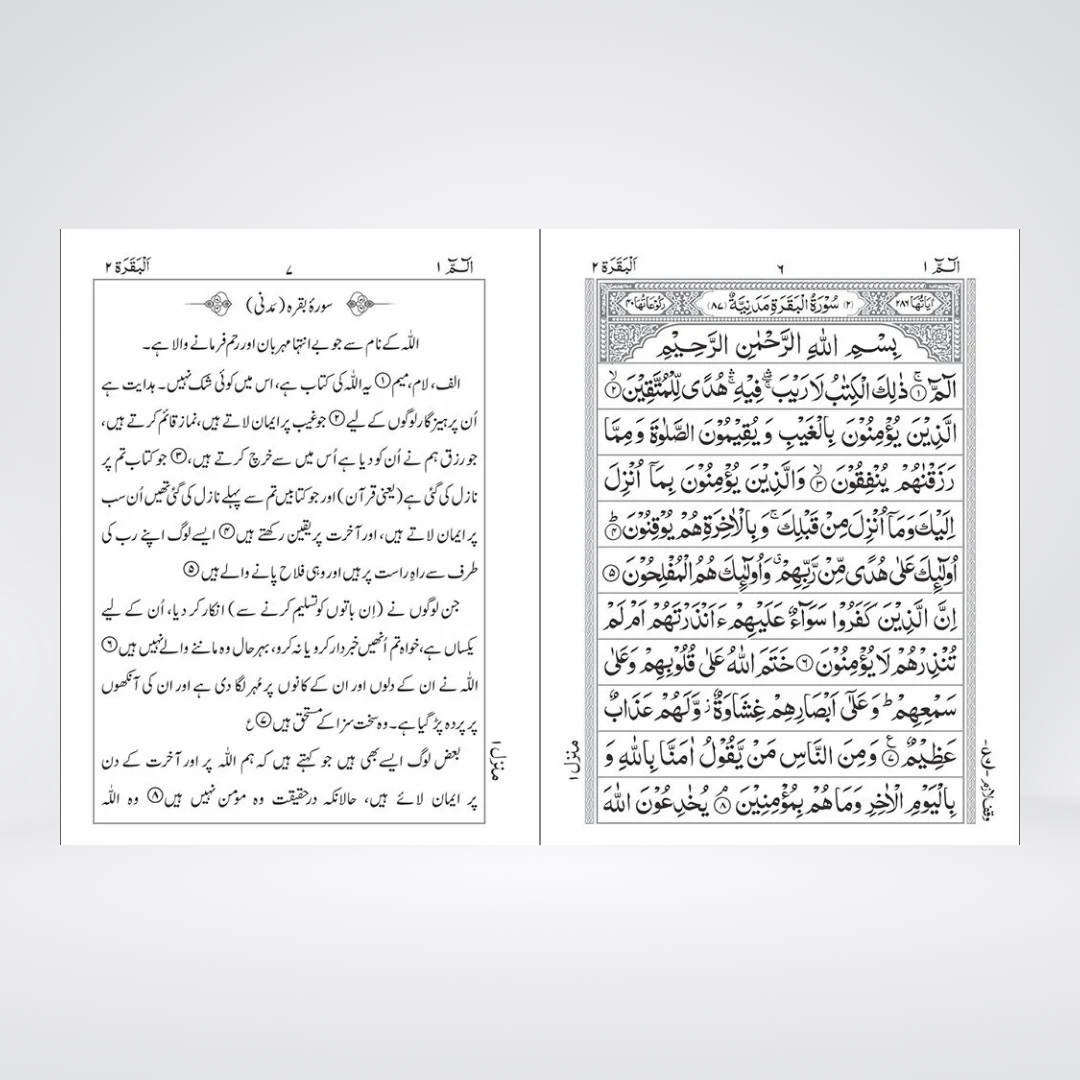 الٓمّٓ ١
٦
اَلْبَقَرَة ٢
اٰيَاتُهَا ٢٨٦
(٢) سُوْرَةُ الْبَقَرَةِ مَدَنِيَّةٌ (٨٧)
رُكُوْعَاتُهَا ٤٠
بِسْمِ اللّٰهِ الرَّحْمٰنِ الرَّحِيْمِ
الٓمّٓ ۚ ۝١ ذٰلِكَ الْكِتٰبُ لَا رَيْبَ ۛ فِيْهِ ۛ هُدًى لِّلْمُتَّقِيْنَ ۙ ۝٢
الَّذِيْنَ يُؤْمِنُوْنَ بِالْغَيْبِ وَ يُقِيْمُوْنَ الصَّلٰوةَ وَ مِمَّا
رَزَقْنٰهُمْ يُنْفِقُوْنَ ۙ ۝٣ وَالَّذِيْنَ يُؤْمِنُوْنَ بِمَآ اُنْزِلَ
اِلَيْكَ وَمَآ اُنْزِلَ مِنْ قَبْلِكَ ۚ وَ بِالْاٰخِرَةِ هُمْ يُوْقِنُوْنَ ؕ ۝٤
اُولٰٓئِكَ عَلٰى هُدًى مِّنْ رَّبِّهِمْ ۗ وَاُولٰٓئِكَ هُمُ الْمُفْلِحُوْنَ ۝٥
اِنَّ الَّذِيْنَ كَفَرُوْا سَوَآءٌ عَلَيْهِمْ ءَاَنْذَرْتَهُمْ اَمْ لَمْ
تُنْذِرْهُمْ لَا يُؤْمِنُوْنَ ۝٦ خَتَمَ اللّٰهُ عَلٰى قُلُوْبِهِمْ وَعَلٰى
سَمْعِهِمْ ؕ وَ عَلٰٓى اَبْصَارِهِمْ غِشَاوَةٌ ؗ وَّلَهُمْ عَذَابٌ
عَظِيْمٌ ۝٧ ع وَمِنَ النَّاسِ مَنْ يَّقُوْلُ اٰمَنَّا بِاللّٰهِ وَ
بِالْيَوْمِ الْاٰخِرِ وَمَا هُمْ بِمُؤْمِنِيْنَ ۝٨ يُخٰدِعُوْنَ اللّٰهَ
منزل ١
وقف لازم
الٓمّٓ ١
٧
اَلْبَقَرَة ٢
سورۂ بقرہ (مَدنی)
اللّٰہ کے نام سے جو بے انتہا مہربان اور رحم فرمانے والا ہے۔
الف، لام، میم ① یہ اللّٰہ کی کتاب ہے، اس میں کوئی شک نہیں۔ ہدایت ہے
اُن پرہیزگار لوگوں کے لیے ② جو غیب پر ایمان لاتے ہیں، نماز قائم کرتے ہیں،
جو رزق ہم نے اُن کو دیا ہے اُس میں سے خرچ کرتے ہیں، ③ جو کتاب تم پر
نازل کی گئی ہے (یعنی قرآن) اور جو کتابیں تم سے پہلے نازل کی گئی تھیں اُن سب
پر ایمان لاتے ہیں، اور آخرت پر یقین رکھتے ہیں ④ ایسے لوگ اپنے رب کی
طرف سے راہِ راست پر ہیں اور وہی فلاح پانے والے ہیں ⑤
جن لوگوں نے (اِن باتوں کو تسلیم کرنے سے) انکار کر دیا، اُن کے لیے
یکساں ہے، خواہ تم اُنھیں خبردار کرو یا نہ کرو، بہر حال وہ ماننے والے نہیں ہیں ⑥
اللّٰہ نے ان کے دلوں اور ان کے کانوں پر مُہر لگا دی ہے اور ان کی آنکھوں
پر پردہ پڑ گیا ہے۔ وہ سخت سزا کے مستحق ہیں ⑦ ع
بعض لوگ ایسے بھی ہیں جو کہتے ہیں کہ ہم اللّٰہ پر اور آخرت کے دن
پر ایمان لائے ہیں، حالانکہ درحقیقت وہ مومن نہیں ہیں ⑧ وہ اللّٰہ
منزل ١